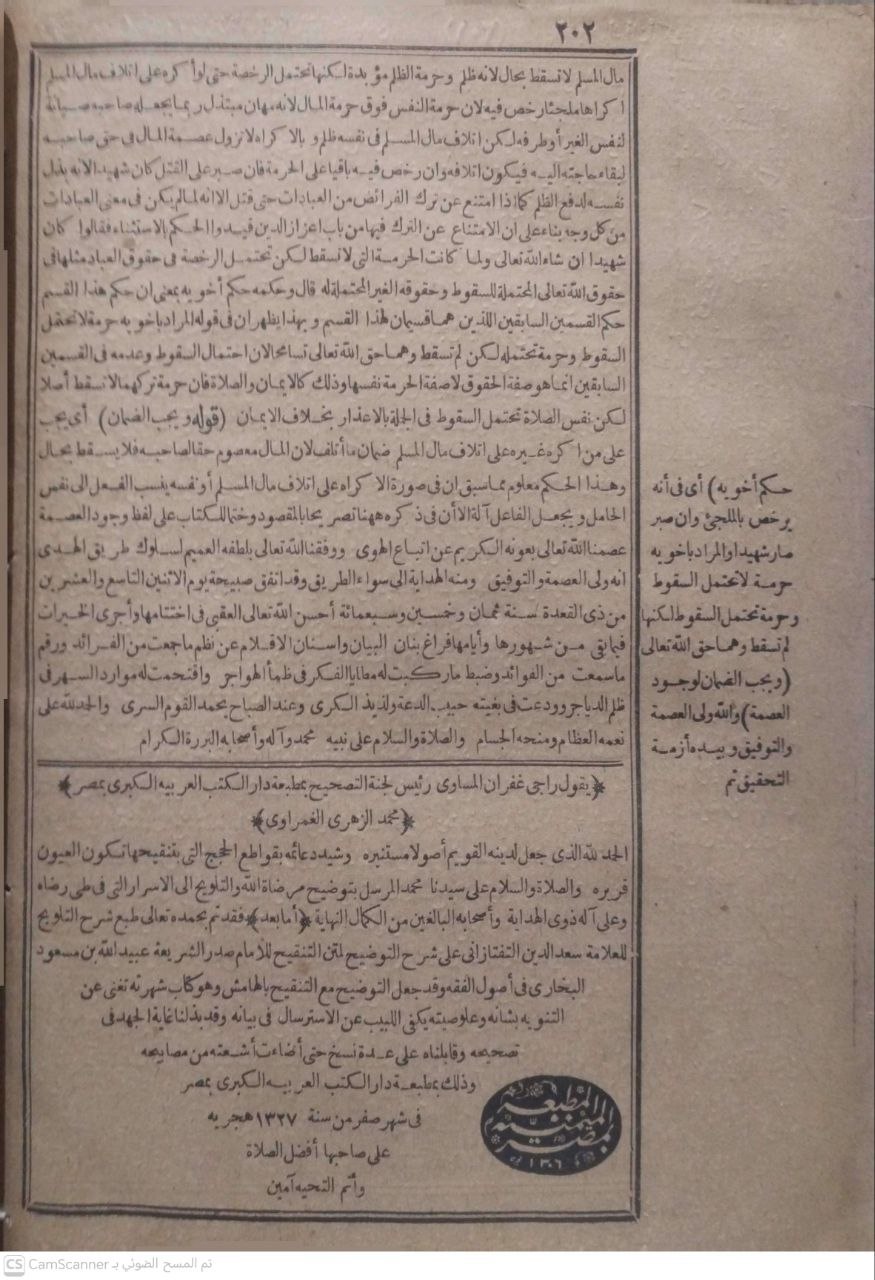 ٢٠٢
مال المسلم لا تسقط بحال لانه ظلم وحرمة الظلم مؤبدة لكنها تحتمل الرخصة حتى لو أكره على اتلاف مال المسلم
اكراها ملجئا رخص فيه لان حرمة النفس فوق حرمة المال لانه مهان مبتذل ربما يجعله صاحبه صيانة
لنفس الغير أو طرفه لكن اتلاف مال المسلم فى نفسه ظلم وبالاكراه لا تزول عصمة المال فى حق صاحبه
لبقاء حاجته اليه فيكون اتلافه وان رخص فيه باقيا على الحرمة فان صبر على القتل كان شهيدا لانه بذل
نفسه لدفع الظلم كما اذا امتنع عن ترك الفرائض من العبادات حتى قتل الا انه لما لم يكن فى معنى العبادات
من كل وجه بناء على أن الامتناع عن الترك فيها من باب اعزاز الدين قيدوا الحكم بالاستثناء فقالوا كان
شهيدا ان شاء الله تعالى ولما كانت الحرمة التى لا تسقط لكن تحتمل الرخصة فى حقوق العباد مثلها فى
حقوق الله تعالى المحتملة للسقوط وحقوقه الغير المحتملة له قال وحكمه حكم أخويه بمعنى ان حكم هذا القسم
حكم القسمين السابقين اللذين هما قسيمان لهذا القسم وبهذا يظهر ان فى قوله المراد باخويه حرمة لا تحتمل
السقوط وحرمة تحتمله لكن لم تسقط وهما حق الله تعالى تسامحا لان احتمال السقوط وعدمه فى القسمين
السابقين انما هو صفة الحقوق لا صفة الحرمة نفسها وذلك كالايمان والصلاة فان حرمة تركهما لا تسقط أصلا
لكن نفس الصلاة تحتمل السقوط فى الجملة بالاعذار بخلاف الايمان (قوله ويجب الضمان) أى يجب
على من اكره غيره على اتلاف مال المسلم ضمان ما أتلف لان المال معصوم حقا لصاحبه فلا يسقط بحال
وهذا الحكم معلوم مما سبق ان فى صورة الاكراه على اتلاف مال المسلم أو نفسه ينسب الفعل الى نفس
الحامل ويجعل الفاعل آلة الا أن فى ذكره ههنا تصريحا بالمقصود وختما للكتاب على لفظ وجود العصمة
عصمنا الله تعالى بعونه الكريم عن اتباع الهوى ووفقنا الله تعالى بلطفه العميم لسلوك طريق الهدى
انه ولى العصمة والتوفيق ومنه الهداية الى سواء الطريق وقد اتفق صبيحة يوم الاثنين التاسع والعشرين
من ذى القعدة سنة ثمان وخمسين وسبعمائة أحسن الله تعالى العقبى فى اختتامها وأجرى الخيرات
فيما بقى من شهورها وأيامها فراغ بنان البيان واسنان الاقلام عن نظم ما جمعت من الفرائد ورقم
ما سمعت من الفوائد وضبط ما ركبت له مطايا الفكر فى ظمأ الهواجر واقتحمت له موارد السهر فى
ظلم الدياجر وودعت فى بغيته حبيب الدعة ولذيذ الكرى وعند الصباح يحمد القوم السرى والحمد لله على
نعمه العظام ومنحه الجسام والصلاة والسلام على نبيه محمد وآله وأصحابه البررة الكرام
حكم أخويه) أى فى أنه
يرخص بالملجئ وان صبر
صار شهيدا والمراد باخويه
حرمة لا تحتمل السقوط
وحرمة تحتمل السقوط لكنها
لم تسقط وهما حق الله تعالى
(ويجب الضمان لوجود
العصمة) والله ولى العصمة
والتوفيق وبيده أزمة
التحقيق تم
﴿يقول راجى غفران المساوى رئيس لجنة التصحيح بمطبعة دار الكتب العربيه الكبرى بمصر﴾
﴿محمد الزهرى الغمراوى﴾
الحمد لله الذى جعل لدينه القويم أصولا مستنيره وشيد دعائمه بقواطع الحجج التى بتنقيحها تكون العيون
قريره والصلاة والسلام على سيدنا محمد المرسل بتوضيح مرضاة الله والتلويح الى الاسرار التى فى طى رضاه
وعلى آله ذوى الهداية وأصحابه البالغين من الكمال النهاية ﴿أما بعد﴾ فقد تم بحمده تعالى طبع شرح التلويح
للعلامة سعد الدين التفتازانى على شرح التوضيح لمتن التنقيح للامام صدر الشريعة عبيد الله بن مسعود
البخارى فى أصول الفقه وقد جعل التوضيح مع التنقيح بالهامش وهو كتاب شهرته تغنى عن
التنويه بشانه وعلو صيته يكفى اللبيب عن الاسترسال فى بيانه وقد بذلنا غاية الجهد فى
تصحيحه وقابلناه على عدة نسخ حتى أضاءت أشعته من مصابيحه
وذلك بمطبعة دار الكتب العربيه الكبرى بمصر
فى شهر صفر من سنة ١٣٢٧ هجريه
على صاحبها أفضل الصلاة
وأتم التحيه آمين
المطبعة
الميمنية
بمصر
١٣٠٦
CS CamScanner تم المسح الضوئي بـ